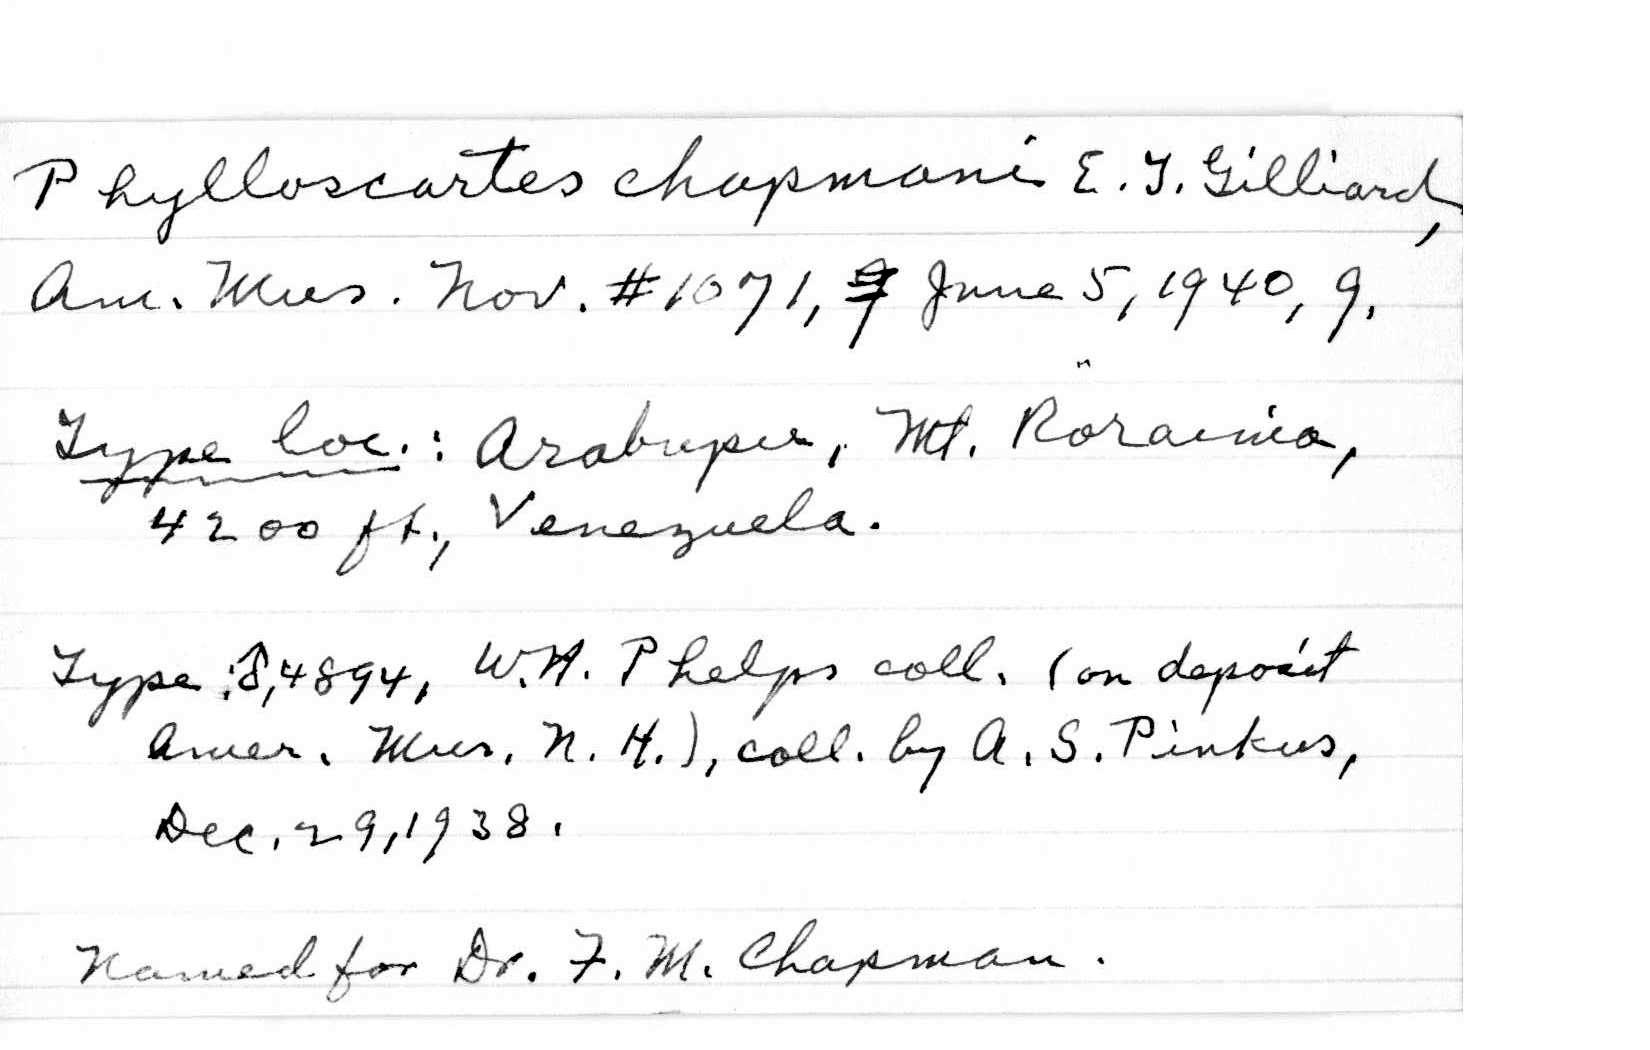 Phylloscartes chapmani E. T. Gilliard,
Am. Mus. Nov. #1071, June 5, 1940, 9.
Type loc.: Arabupu, Mt. Roraima,
4200 ft., Venezuela.
Type: ♂, 4894, W.H. Phelps coll. (on deposit
Amer. Mus. N. H.), coll. by A. S. Pinkus,
Dec. 29, 1938.
Named for Dr. F. M. Chapman.